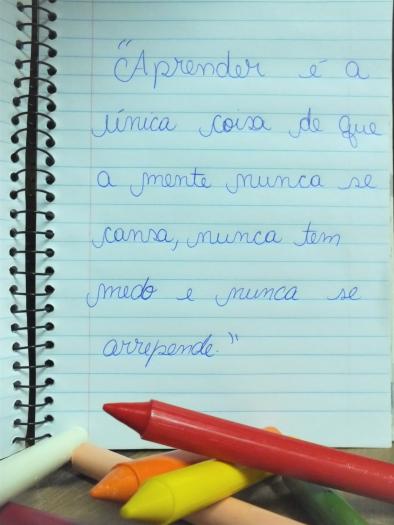 "Aprender é a
única coisa de que
a mente nunca se
cansa, nunca tem
medo e nunca se
arrepende."